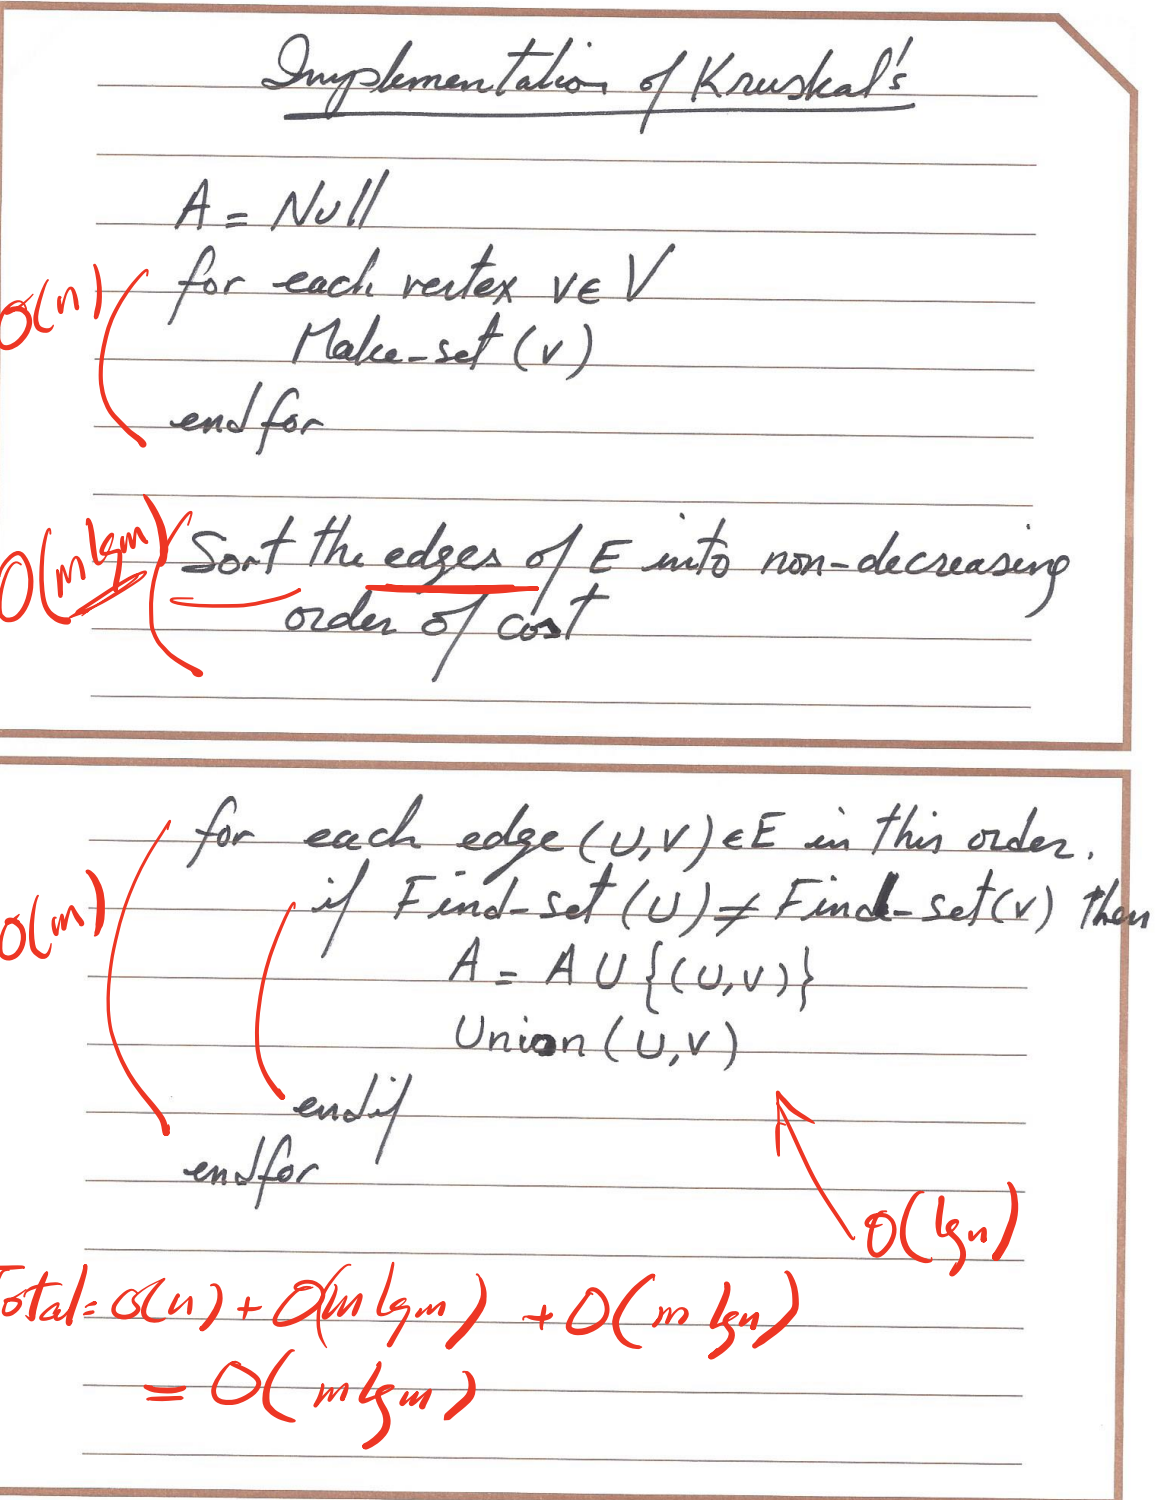 Implementation of Kruskal's
A = Null
for each vertex v ∈ V
O(n)
Make-set (v)
endfor
O(m lg m)
Sort the edges of E into non-decreasing
order of cost
for each edge (U,V) ∈ E in this order.
O(m)
if Find-set (U) ≠ Find-set(v) then
A = A U {(U,V)}
Union (U,V)
endif
endfor
O(lg n)
Total = O(n) + O(m lg m) + O(m lg n)
= O(m lg m)